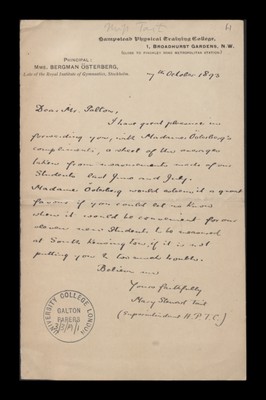 Hampstead Physical Training College,
1, BROADHURST GARDENS, N.W.
(CLOSE TO FINCHLEY ROAD METROPOLITAN STATION.)
PRINCIPAL:
MME. BERGMAN ÖSTERBERG,
Late of the Royal Institute of Gymnastics, Stockholm.
7th October 1892
Dear Mr. Galton,
I have great pleasure in
forwarding you, with Madame Österberg's
compliments, a sheet of the averages
taken from measurements made of our
Students last June and July.
Madame Österberg would esteem it a great
favour if you could let us know
when it would be convenient for our
eleven new Students to be measured
at South Kensington, if it is not
putting you to too much trouble.
Believe me
Yours faithfully
Mary Steward Tait
(Superintendent H.P.T.C.)
UNIVERSITY COLLEGE LONDON
GALTON
PAPERS